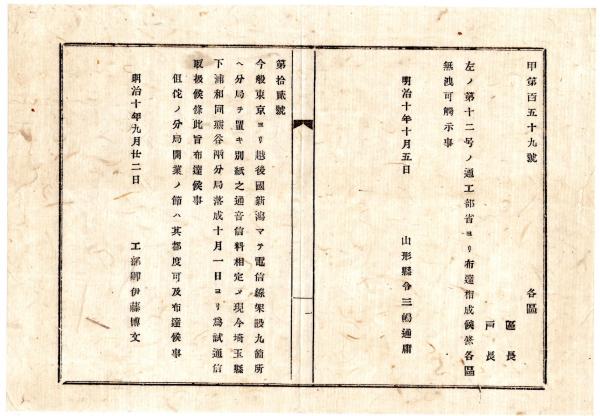 甲第百五十九號
各區
區長
戸長
左ノ第十二号ノ通工部省ヨリ布達相成候條各區
無洩可觸示事
明治十年十月五日
山形縣令三嶋通庸
第拾貳號
今般東京ヨリ越後國新潟マテ電信線架設九箇所
ヘ分局ヲ置キ別紙之通音信料相定メ現今埼玉縣
下浦和同熊谷兩分局落成十月一日ヨリ為試通信
取扱候條此旨布達候事
但佗ノ分局開業ノ節ハ其都度可及布達候事
明治十年九月廿二日
工部卿伊藤博文